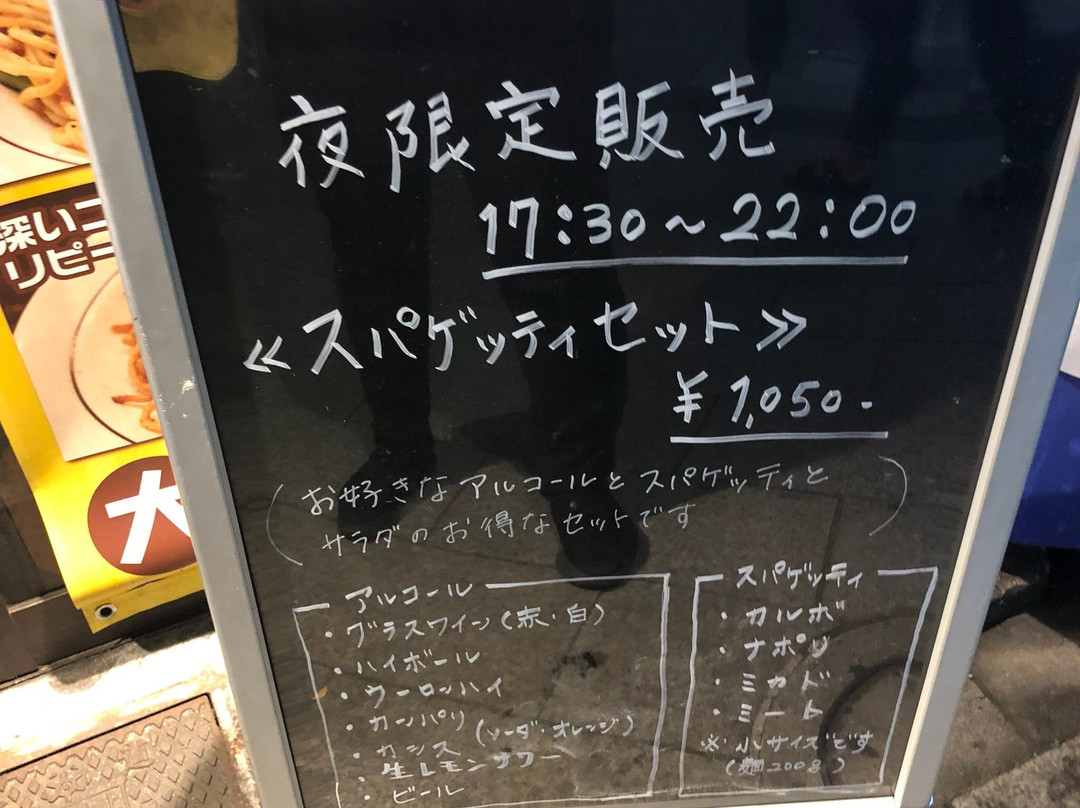 夜限定販売
17:30～22:00
≪スパゲッティセット≫
¥1,050-
(お好きなアルコールとスパゲッティと
サラダのお得なセットです)
アルコール
・グラスワイン(赤・白)
・ハイボール
・ウーロンハイ
・カンパリ
・カシス (ソーダ・オレンジ)
・生レモンサワー
・ビール
スパゲッティ
・カルボ
・ナポリ
・ミカド
・ミート
※小サイズです
(麺200g)
深いコ
リピー
大